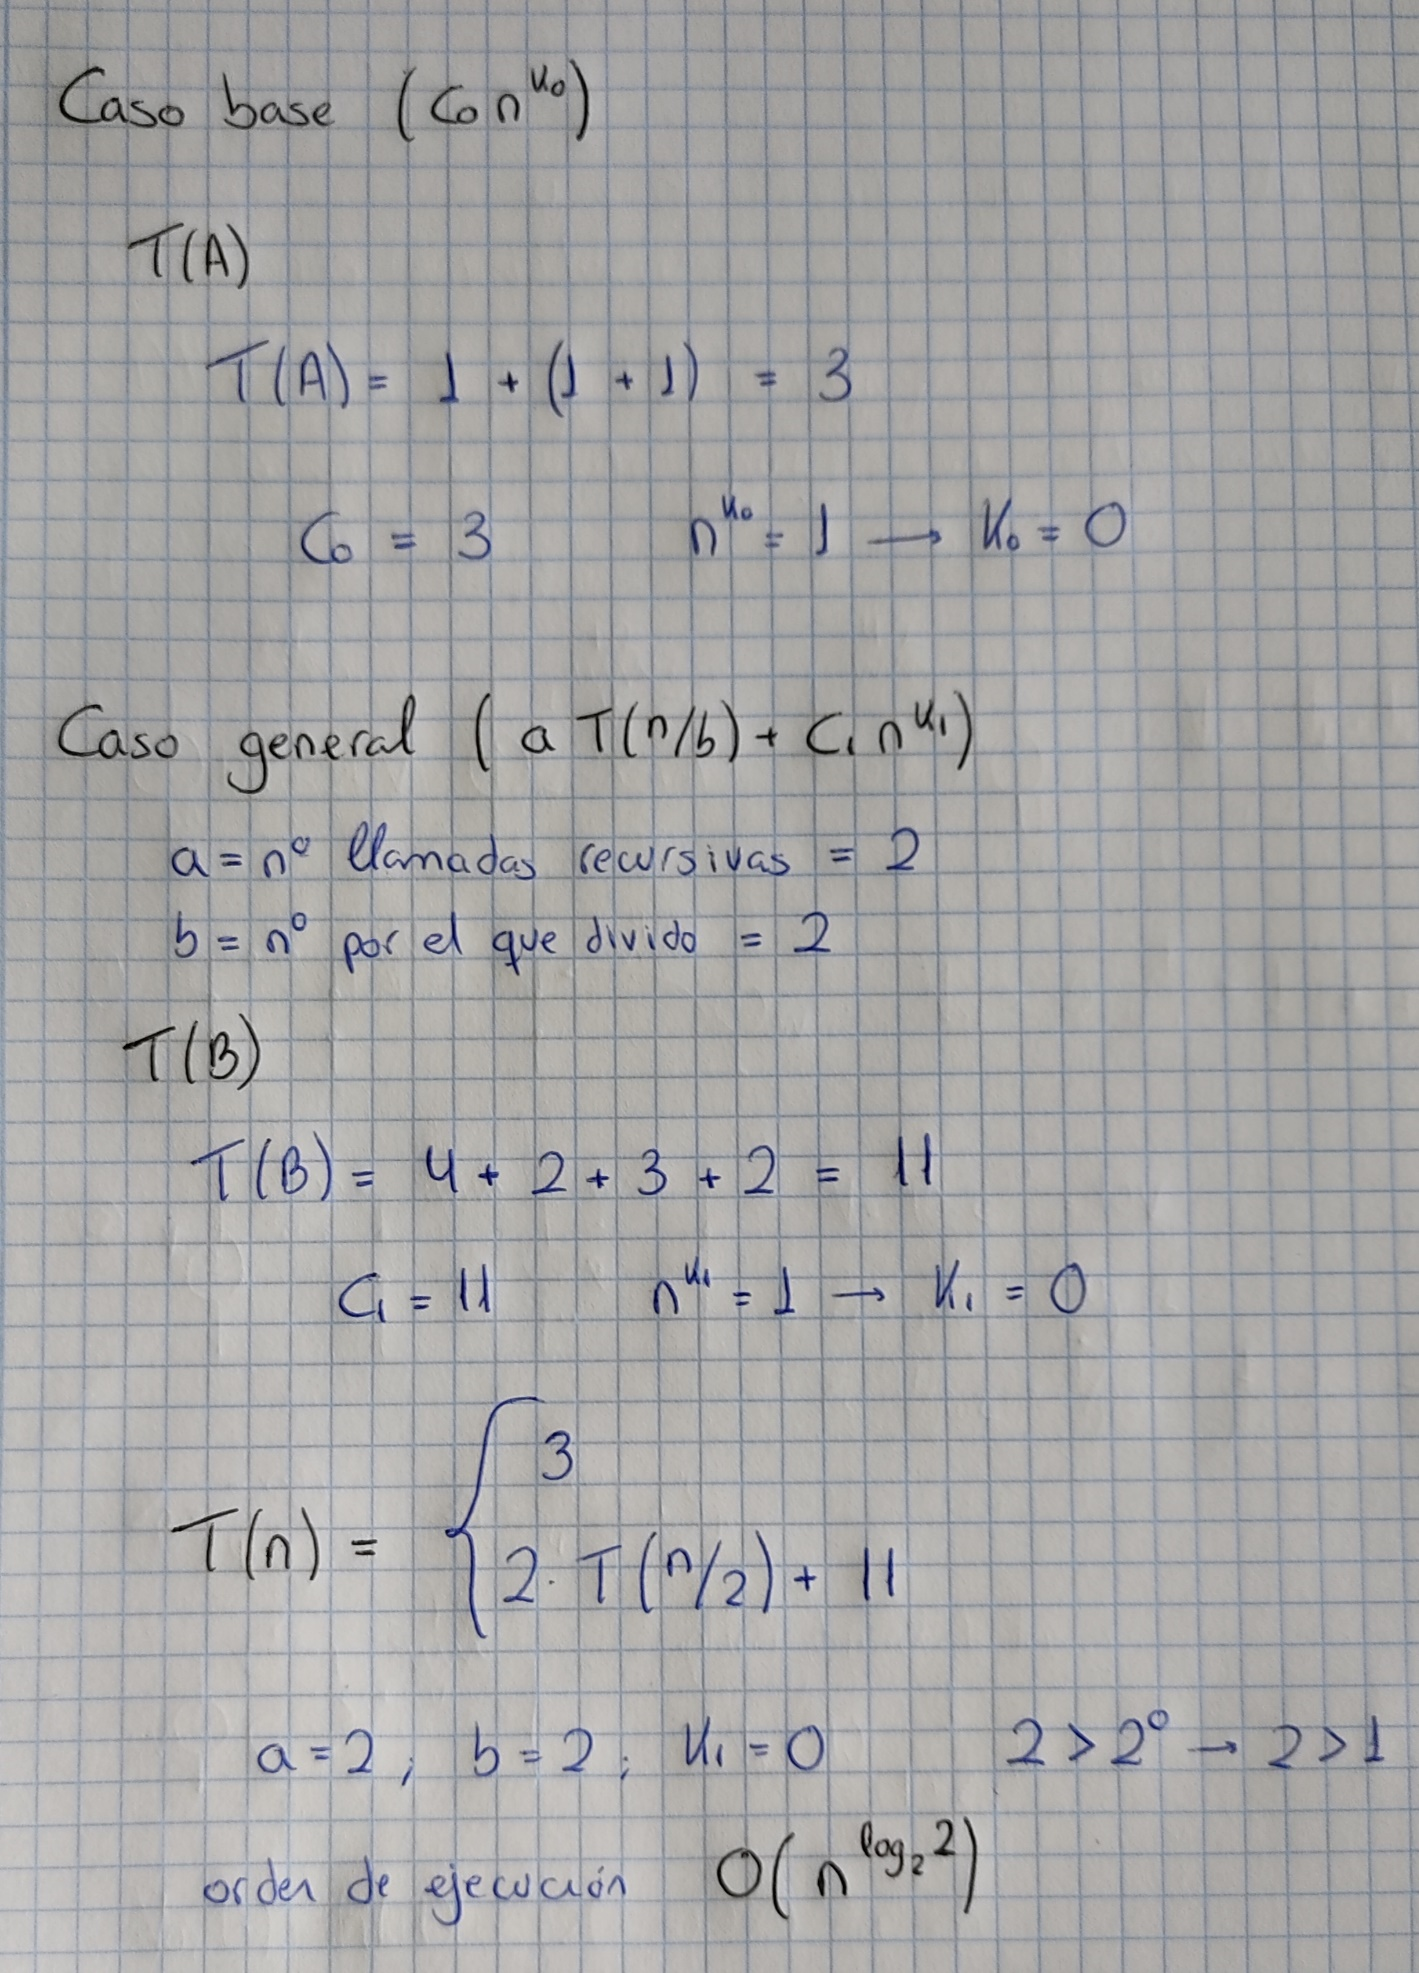 Caso base (C₀ n^k₀)
T(A)
T(A) = 1 + (1 + 1) = 3
C₀ = 3 n^k₀ = 1 → K₀ = 0
Caso general (a T(n/b) + C₁ n^k₁)
a = nº llamadas recursivas = 2
b = nº por el que divido = 2
T(B)
T(B) = 4 + 2 + 3 + 2 = 11
C₁ = 11 n^k₁ = 1 → K₁ = 0
3
T(n) = {
2 · T(n/2) + 11
a = 2 ; b = 2 ; K₁ = 0 2 > 2⁰ → 2 > 1
orden de ejecución O(n^log₂ 2)